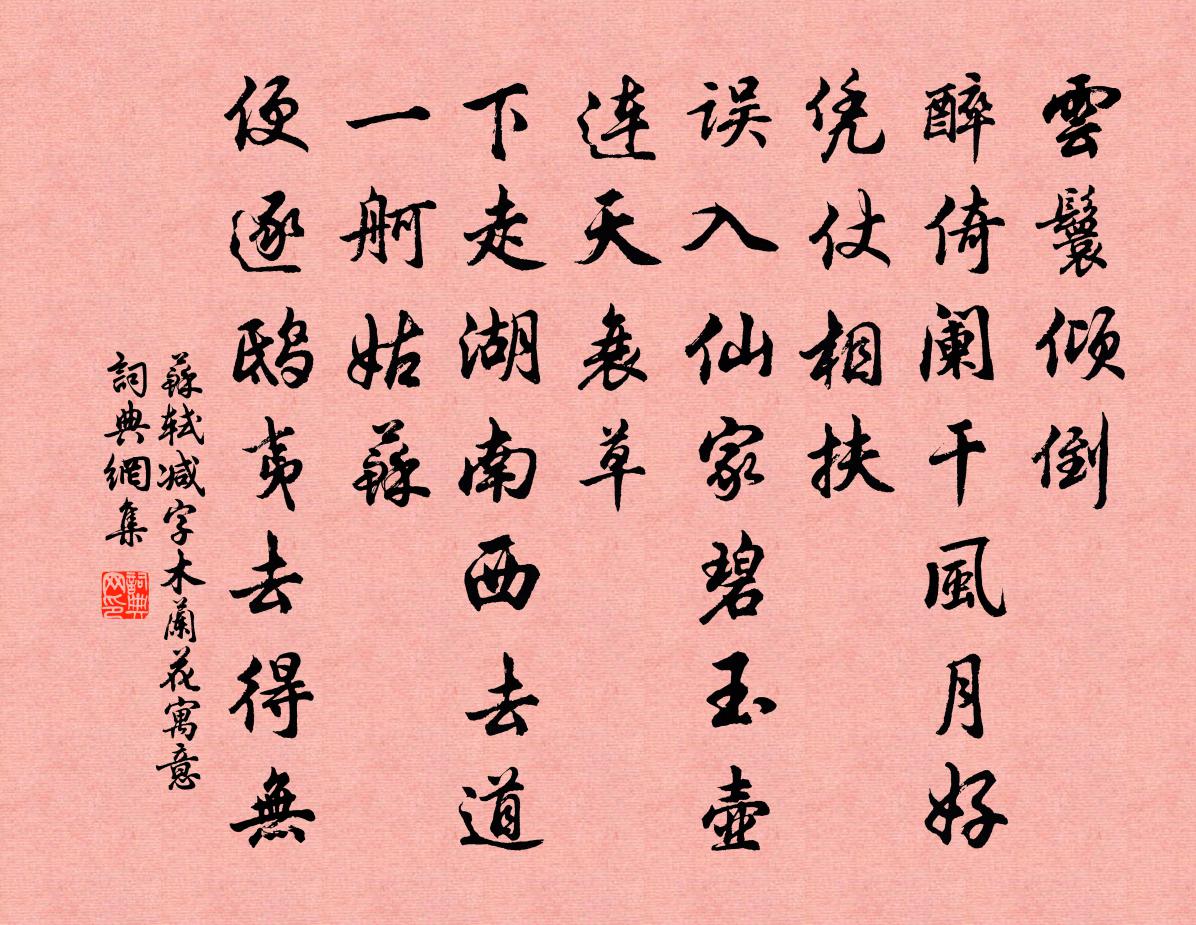 雲鬟倾倒
醉倚阑干風月好
凭仗相扶
误入仙家碧玉壶
连天衰草
下走湖南西去道
一舸姑蘇
便逐鸱夷去得無
蘇轼减字木蘭花寓意
詞典網集
詞典网印